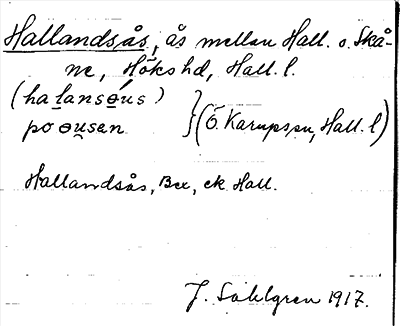 Hallandsås, ås mellan Hall. o. Skå-
ne, Höks hd, Hall. l.
(halansɵ́us)
po ɵusen } (Ö. Karups sn, Hall. l)
Hallandsås, Bex, ek Hall.
J. Sahlgren 1917.